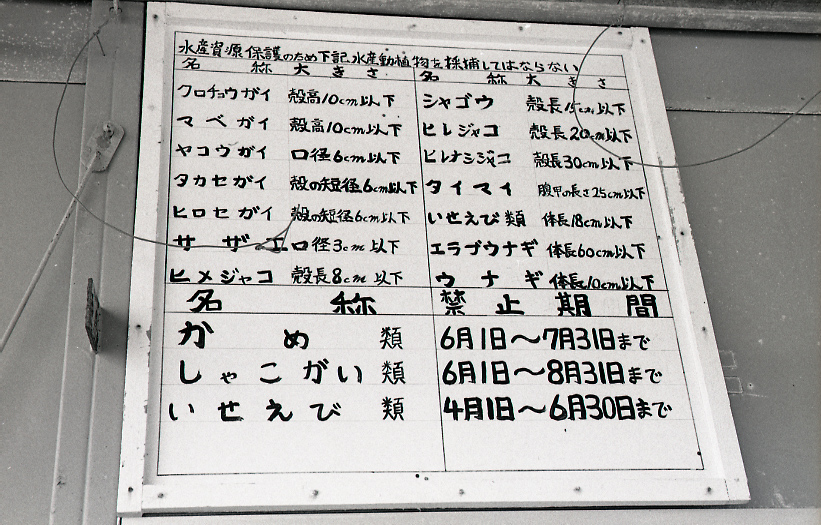 水産資源保護のため下記水産動植物を採捕してはならない
名 称 大きさ 名 称 大きさ
クロチョウガイ 殻高10cm以下 シャゴウ 殻長15cm以下
マベガイ 殻高10cm以下 ヒレジャコ 殻長20cm以下
ヤコウガイ 口径6cm以下 ヒレナシジャコ 殻長30cm以下
タカセガイ 殻の短径6cm以下 タイマイ 腹甲の長さ25cm以下
ヒロセガイ 殻の短径6cm以下 いせえび類 体長18cm以下
サザエ 口径3cm以下 エラブウナギ 体長60cm以下
ヒメジャコ 殻長8cm以下 ウナギ 体長10cm以下
名 称 禁止期間
かめ類 6月1日～7月31日まで
しゃこがい類 6月1日～8月31日まで
いせえび類 4月1日～6月30日まで